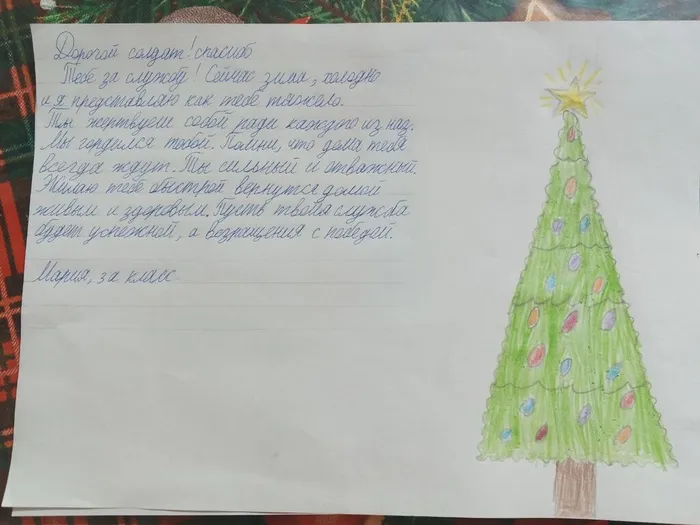 Дорогой солдат! спасибо
Тебе за службу! Сейчас зима, холодно
и я представляю как тебе тяжело.
Ты жертвуеш собой ради каждого из нас.
Мы гордимся тобой. Помни, что дома тебя
всегда ждут. Ты сильный и отважный.
Желаю тебе быстрой вернутся домой
живым и здоровым. Пусть твоя служба
будет успежной, а возращения с победой.
Мария, 3а класс